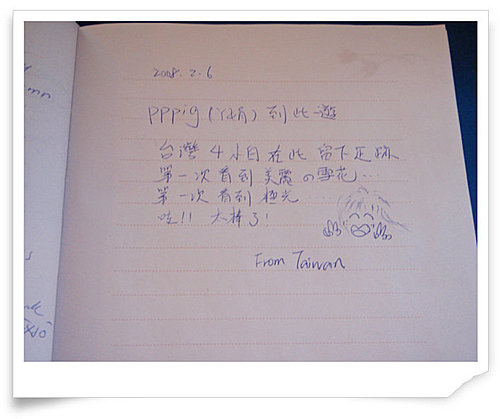 2008. 2. 6
PPPig ( ) 到此一遊
台灣 4 小 在此 留下足跡
第一次 看到 美麗 の 雪花...
第一次 看到 極光......
哇!! 太棒了!
From Taiwan